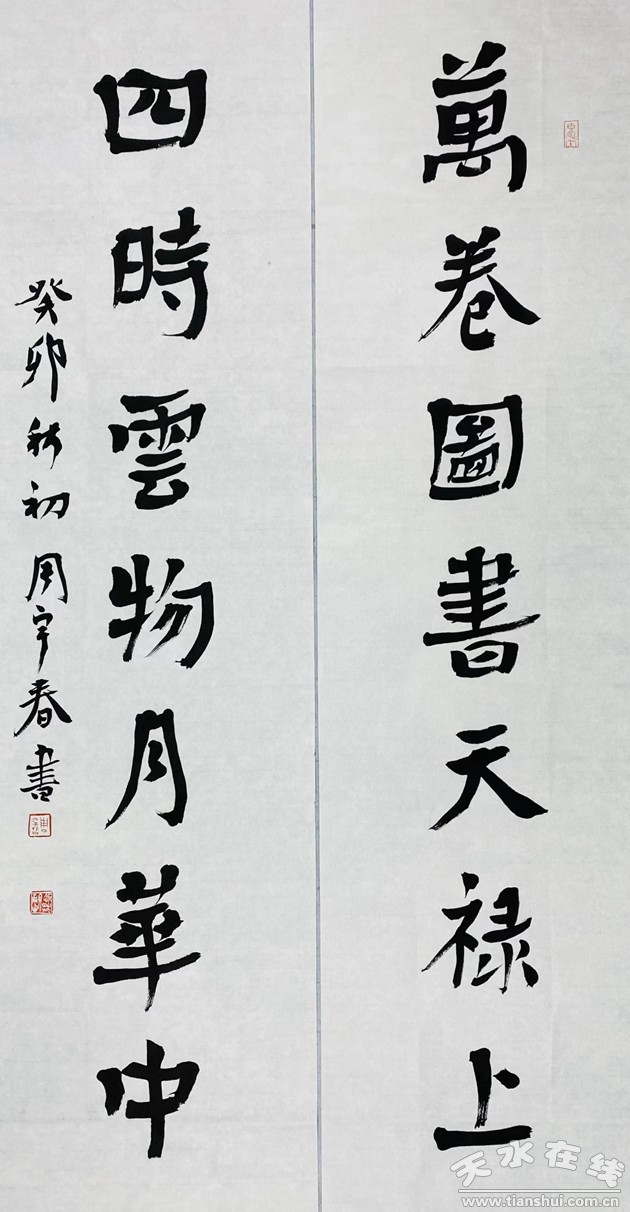 萬卷圖書天禄上
四時雲物月華中
癸卯秋初周宇春書
天水在线
www.tianshui.com.cn